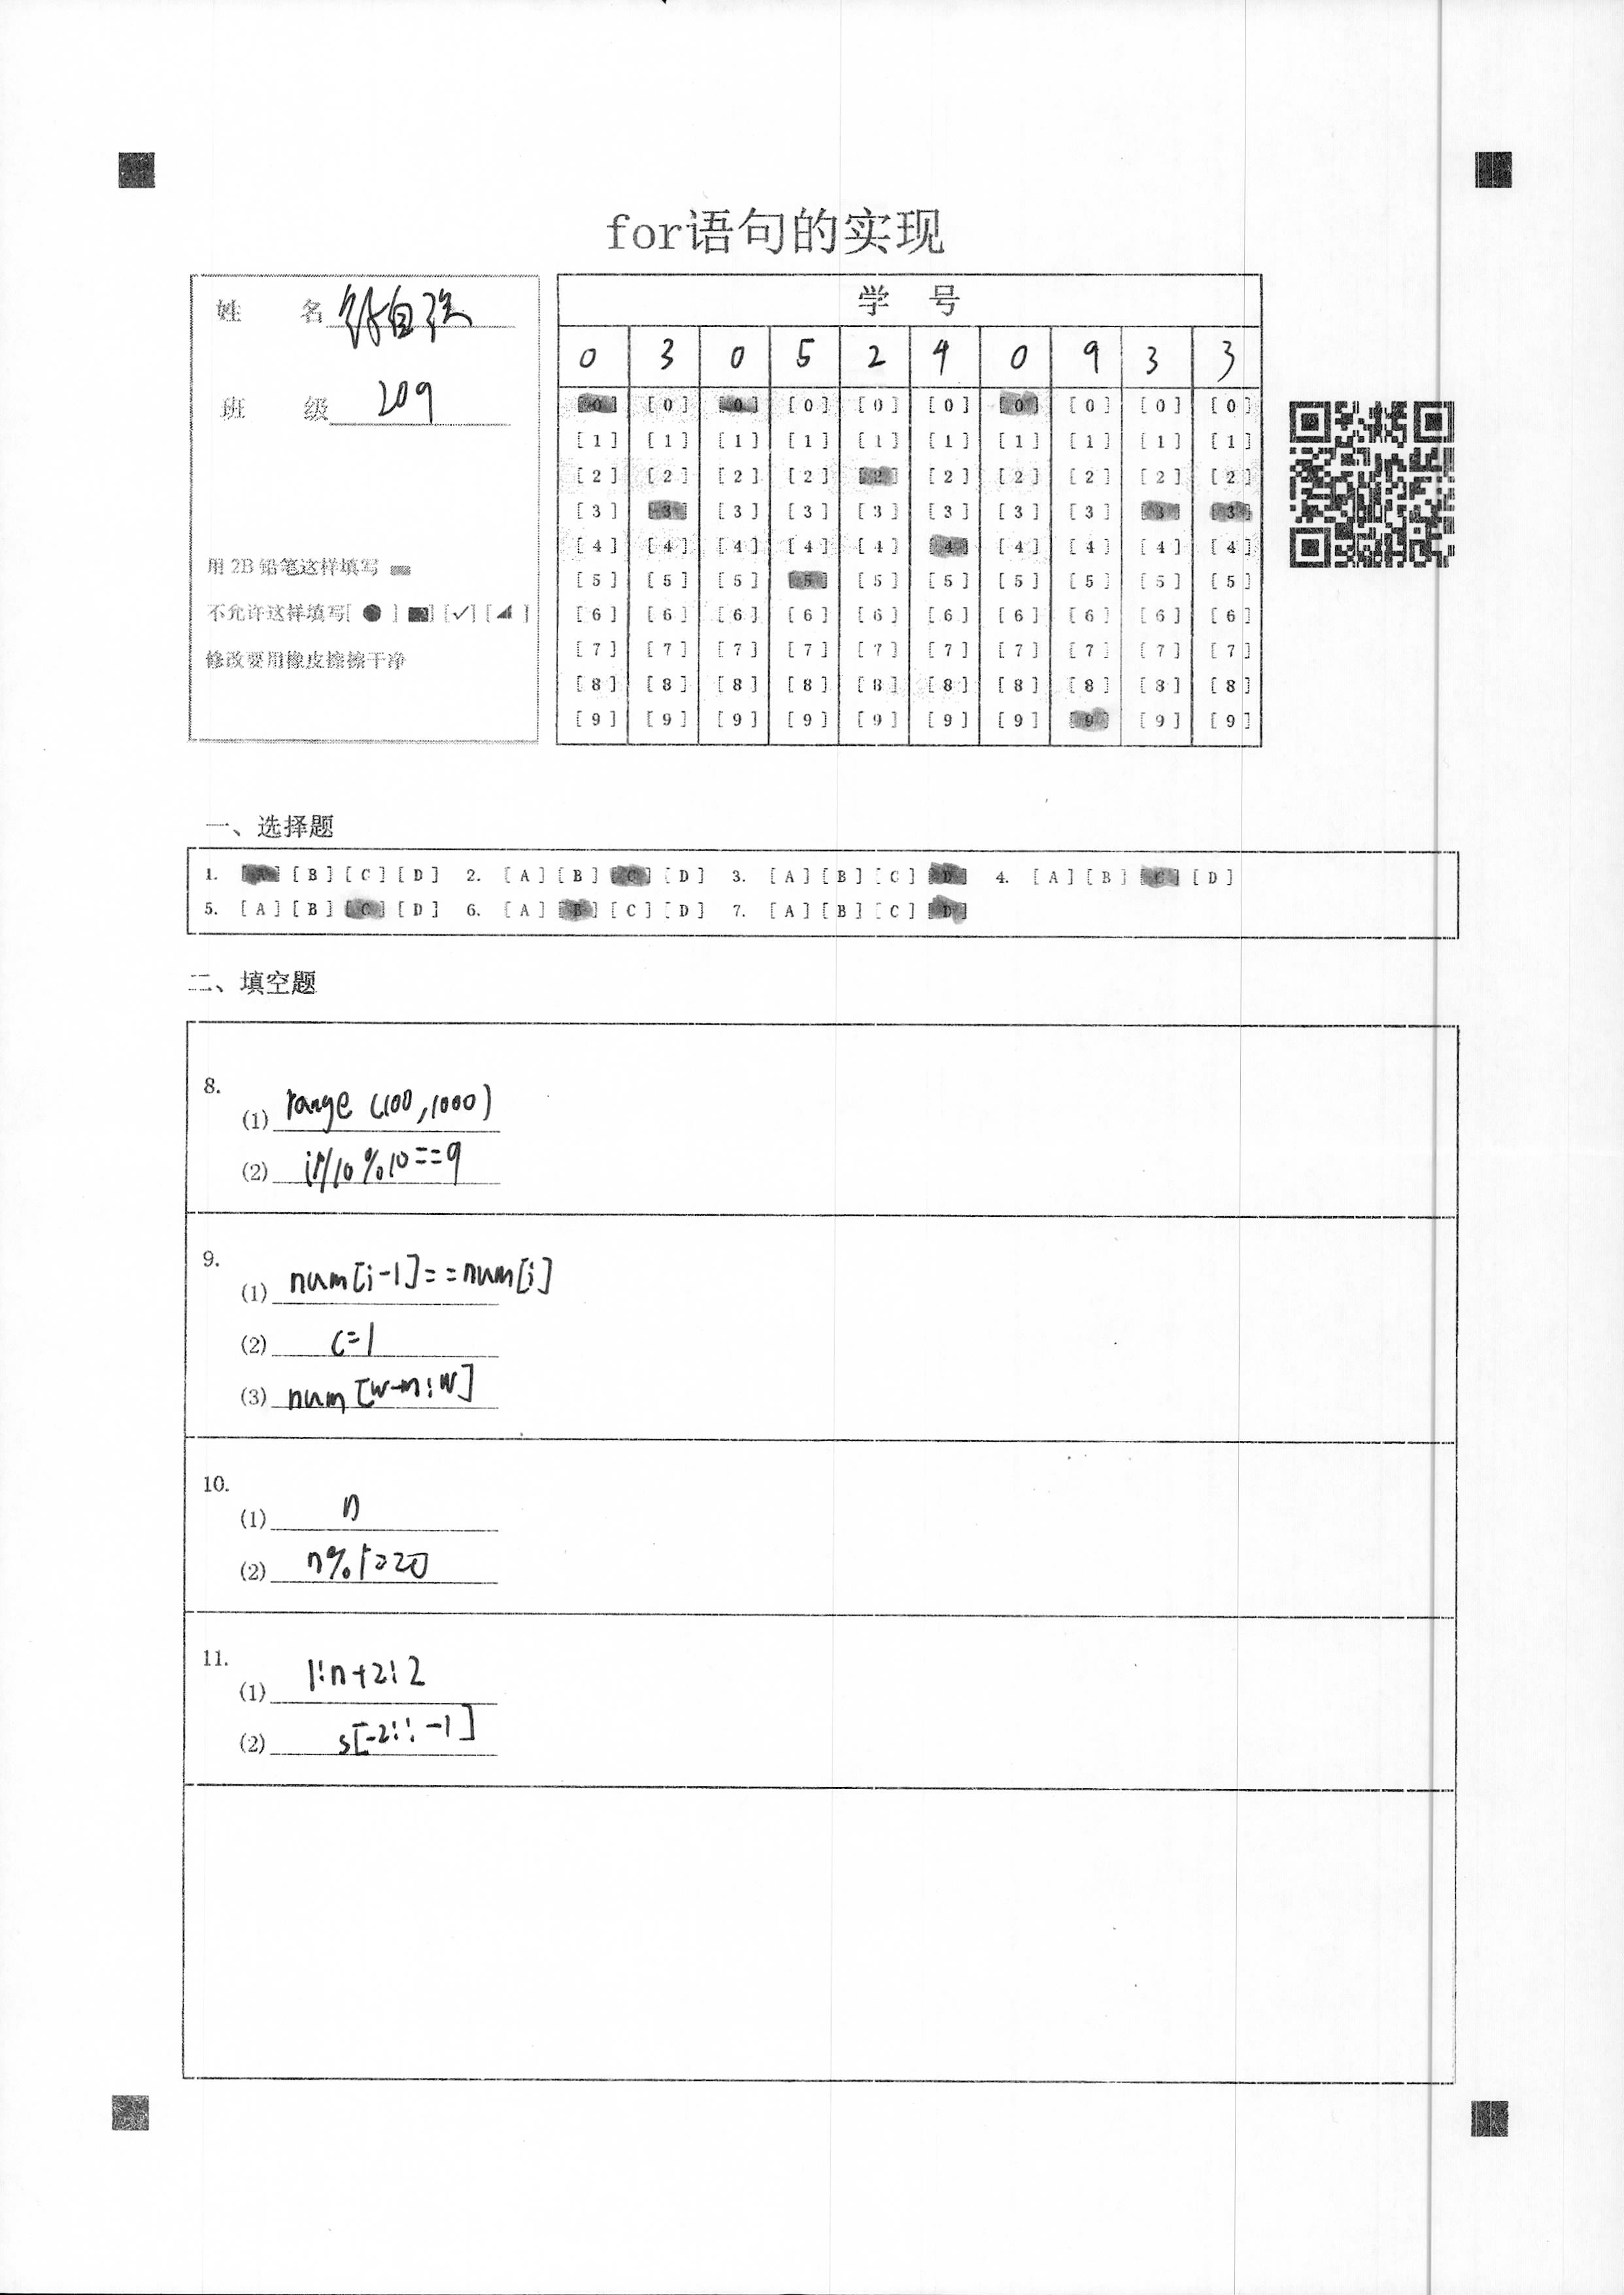 for语句的实现
姓 名
班 级 209
用 2B 铅笔这样填写
不允许这样填写[ ● ] [✓] [ ]
修改要用橡皮擦擦干净
学 号
0 3 0 5 2 4 0 9 3 3
[0] [0] [0] [0] [0] [0] [0] [0] [0] [0]
[1] [1] [1] [1] [1] [1] [1] [1] [1] [1]
[2] [2] [2] [2] [2] [2] [2] [2] [2] [2]
[3] [3] [3] [3] [3] [3] [3] [3] [3] [3]
[4] [4] [4] [4] [4] [4] [4] [4] [4] [4]
[5] [5] [5] [5] [5] [5] [5] [5] [5] [5]
[6] [6] [6] [6] [6] [6] [6] [6] [6] [6]
[7] [7] [7] [7] [7] [7] [7] [7] [7] [7]
[8] [8] [8] [8] [8] [8] [8] [8] [8] [8]
[9] [9] [9] [9] [9] [9] [9] [9] [9] [9]
一、选择题
1. [A] [B] [C] [D] 2. [A] [B] [C] [D] 3. [A] [B] [C] [D] 4. [A] [B] [C] [D]
5. [A] [B] [C] [D] 6. [A] [B] [C] [D] 7. [A] [B] [C] [D]
二、填空题
8.
(1) range (100,1000)
(2) i//10%10==9
9.
(1) num[i-1]==num[i]
(2) c=1
(3) num[w-m:w]
10.
(1) n
(2)
11.
(1) 1:n+2:2
(2) s[-2::-1]